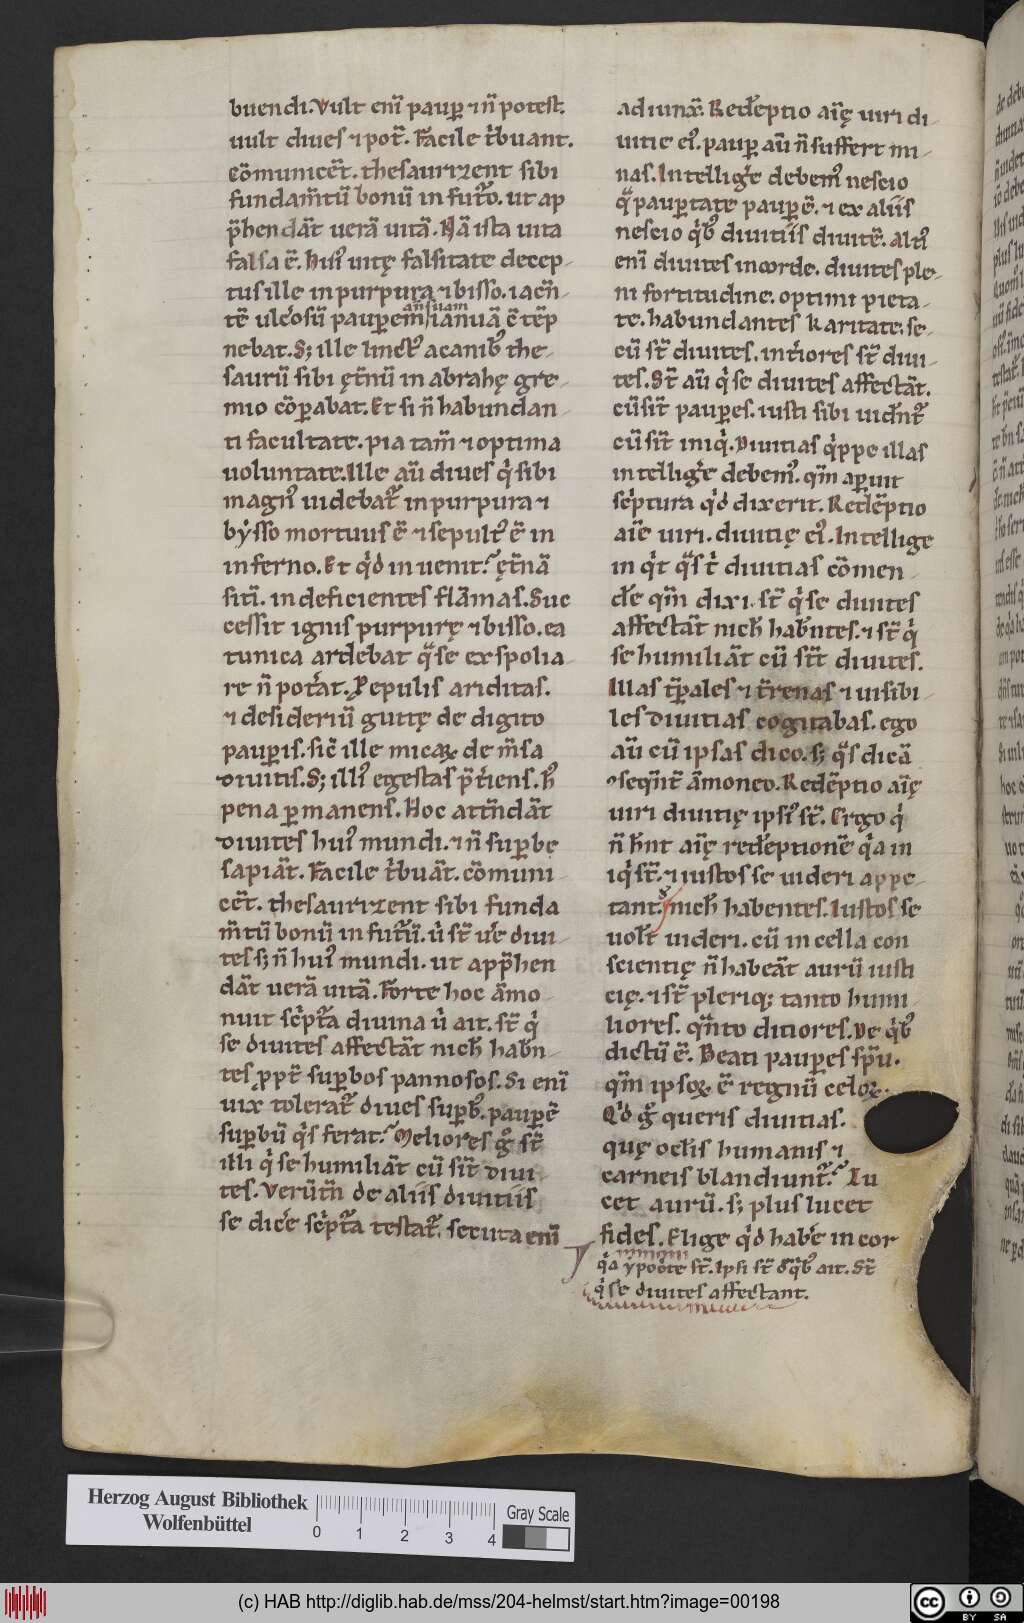 buendi. Vult eni̅ paup̲ ⁊ n̅ potest.
uult diues ⁊ pot̅. Facile t'buant.
co̅municet̅. thesaurizent sibi
fundam̅tu̅ bonu̅ in futu̅. ut ap
p̅hendat̅ uera̅ uita̅. Na̅ ista uita
falsa e̅. Hui᾽ uitę falsitate decep-
tus ille in purpura ⁊ bisso. iacen̅-
te̅ ulc'osu̅ paupere̅ an̅ suam ianua̅ c̅te̅p
nebat. S; ille linct᾽ a canib᾽ the-
sauru̅ sibi ęt̅nu̅ in abrahę gre-
mio co̅parabat. Et si n̅ habundan-
ti facultate. pia tam̅ ⁊ optima
uoluntate. Ille au̅ diues q̇ sibi
magn᾽ uidebat᷑ in purpura ⁊
bẏsso mortuus e̅ ⁊ sepult᾽ e̅ in
inferno. Et q'd inuenit? ęt̅na̅
siti̅. indeficientes fla̅mas. Suc
cessit ignis purpurę ⁊ bisso. ea
tunica ardebat q̈ se exspolia-
re n̅ pot'at. P epulis ariditas.
⁊ desideriu̅ guttę de digito
paup̲is. sic̅ ille micaꝝ de m̅sa
diuitis. S; illi᾽ egestas p̅t'iens. h᾽
pena p̲manens. Hoc atten̅dat̅
diuites hui᾽ mundi. ⁊ n̅ sup̲be
sapiat̅. Facile t'buat̅. co̅muni-
cet̅. thesaurizent sibi funda
m̅tu̅ bonu̅ in futu̅ꝝ. u̇ st̅ u'e diui-
tes s; n̅ hui᾽ mundi. ut app̅hen
dat̅ uera̅ uita̅. Forte hoc a̅mo-
nuit sc'pt̅a diuina u̇ ait. st̅ q̇
se diuites affectat̅ nich̅ habn̅-
tes. ppt̅ sup̲bos pannosos. Si eni̅
uix tolerat᷑ diues sup̲b᾽. paup̲e̅
sup̲bu̅ q's ferat? Meliores g̊ st̅
illi q̇ se humiliat̅ cu̅ sit̅ diui-
tes. Verut̅n̅ de aliis diuitiis
se dic'e sc'pt̅a testat᷑. secuta eni̅
adiunx̅. Rede̅ptio ai̅ę uiri di-
uitie ei᾽. paup̲ au̅ n̅ suffert mi-
nas. Intellig'e debem᾽ nescio
q̈ paup̲tate paup̲e̅. ⁊ ex aliis
nescio q'b᾽ diuitiis diuite̅. Alti᾽
eni̅ diuites in corde. diuites ple-
ni fortitudine. optimi pieta-
te. habundantes karitate. se-
cu̅ st̅ diuites. int'iores st̅ diui-
tes. St̅ au̅ q̇ se diuites affectat̅.
cu̅ sit̅ paup̲es. iusti sibi uidn̅t᷑
cu̅ sit̅ iniq̇. Diuitias q'ppe illas
intellig'e debem᾽. qm̅ ap̲uit
sc'ptura q'd dixerit. Rede̅ptio
ai̅e uiri. diuitię ei᾽. Intellige
inq't q̈s t' diuitias co̅men-
d'e qm̅ dixi. st̅ q̇ se diuites
affectat̅ nich̅ habn̅tes. ⁊ st̅ q̇
se humiliat̅ cu̅ sit̅ diuites.
Illas t̅p̲ales ⁊ t̅renas ⁊ uisibi-
les diuitias cogitabas. ego
au̅ cu̅ ipsas dico. s; q̈s dica̅
seqn̅t̅ a̅moneo. Rede̅ptio ai̅ę
uiri diuitię ipsi᾽ st̅. Ergo q̇
n̅ hn̅t ai̅ę rede̅ptione̅ q'a in
iq̇ st̅. ⁊ iustos se uideri appe-
tant. nich̅ habentes. Iustos se
uolt̅ uideri. cu̅ in cella con
scientię n̅ habeat̅ auru̅ iusti
cię. ⁊ st̅ pleriq; tanto humi-
liores. qn̅to ditiores. De q'b᾽
dictu̅ e̅. Beati paup̲es sp̅u.
qm̅ ipsoꝝ e̅ regnu̅ celoꝝ.
Q'd g̊ queris diuitias.
quę oclis̅ humanis ⁊
carneis blandiunt᷑? Lu
cet auru̅. s; plus lucet
fides. Elige q'd hab'e in cor
q'a ẏpoc'te st̅. Ipsi st̅ d̅ q'b᾽ ait. St̅
q̇ se diuites affectant.
Herzog August Bibliothek
Wolfenbüttel
0 1 2 3 4
Gray Scale
(c) HAB http://diglib.hab.de/mss/204-helmst/start.htm?image=00198
cc BY SA